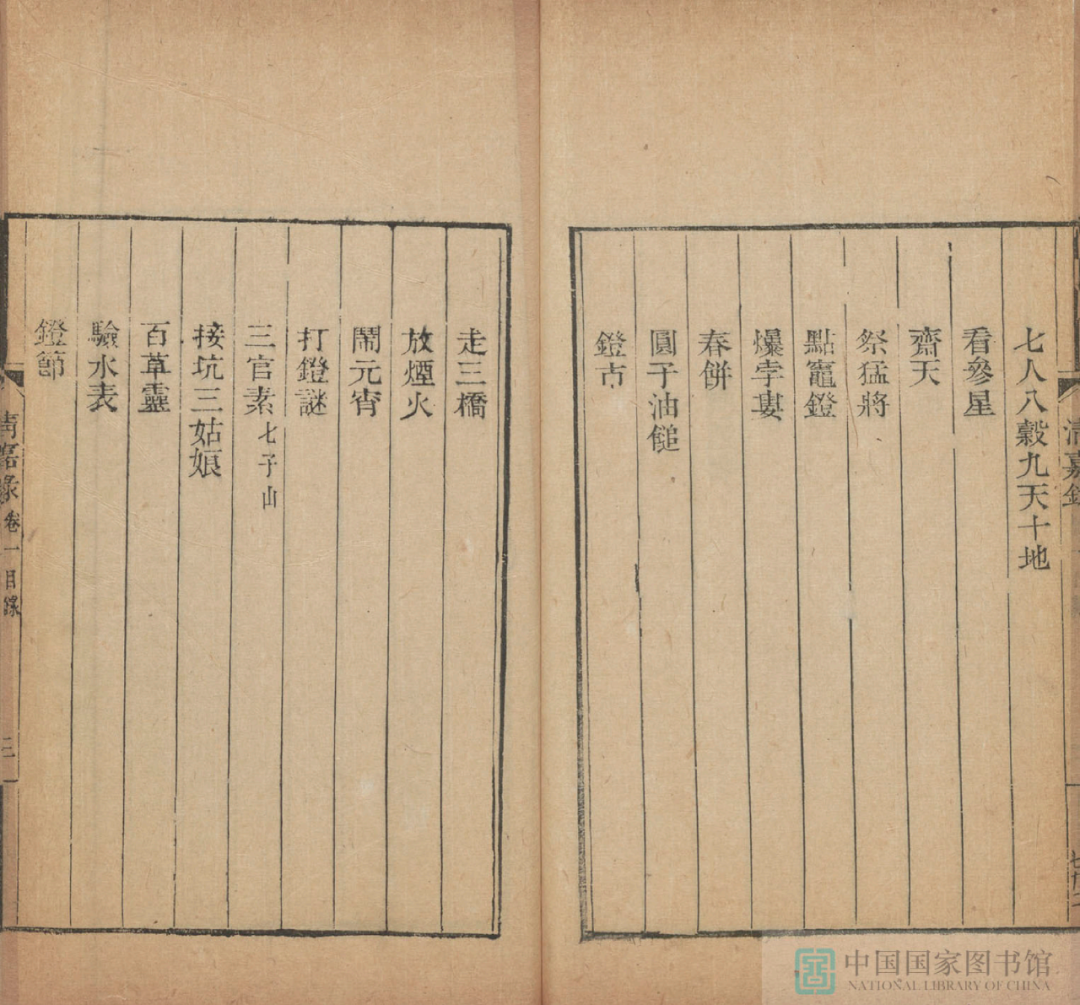 清嘉錄
七人八穀九天十地
看參星
齋天
祭猛將
點竈鐙
爆孛婁
春餅
圓子油䭔
鐙市
走三橋
放煙火
鬧元宵
打鐙謎
三官素 七子山
接坑三姑娘
百草靈
驗水表
鐙節
清嘉錄 卷一目錄
中国国家图书馆
NATIONAL LIBRARY OF CHINA